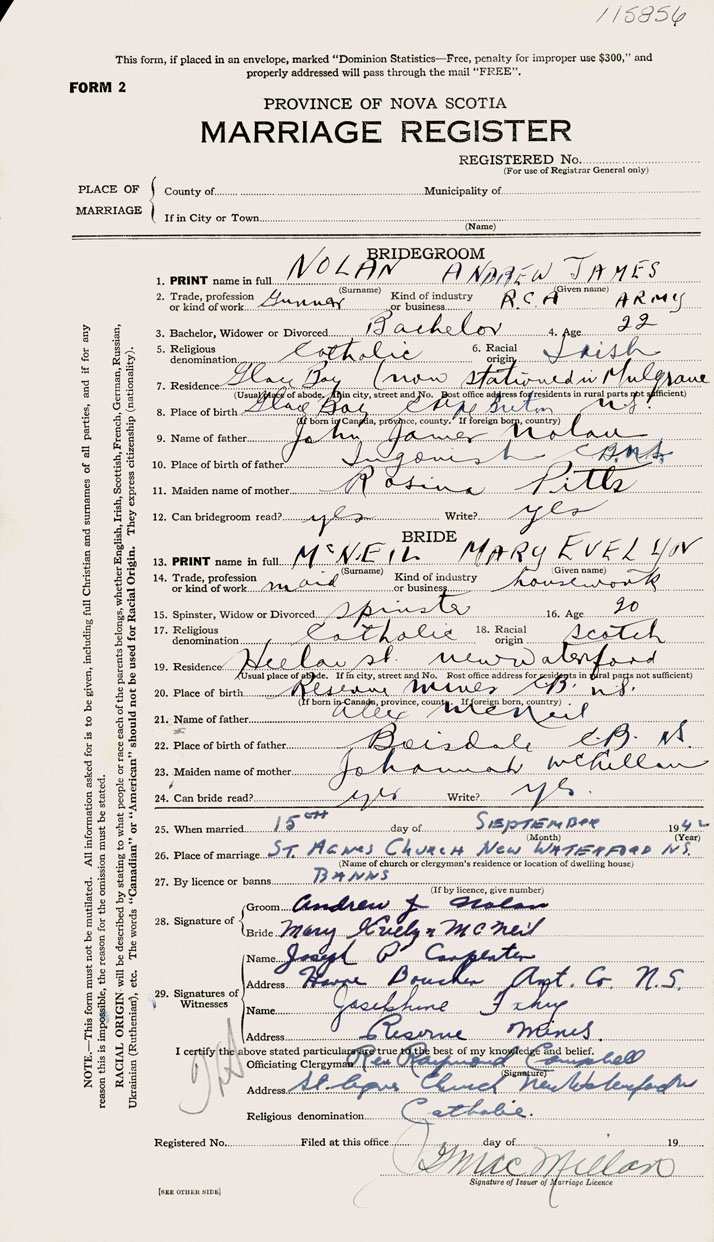 115856
This form, if placed in an envelope, marked "Dominion Statistics—Free, penalty for improper use $300," and
properly addressed will pass through the mail "FREE".
FORM 2
PROVINCE OF NOVA SCOTIA
MARRIAGE REGISTER
REGISTERED No.
(For use of Registrar General only)
PLACE OF MARRIAGE
County of Municipality of
If in City or Town
(Name)
BRIDEGROOM
1. PRINT name in full NOLAN ANDREW JAMES
(Surname) (Given name)
2. Trade, profession or kind of work Gunner Kind of industry or business R.C.A ARMY
3. Bachelor, Widower or Divorced Bachelor 4. Age 22
5. Religious denomination Catholic 6. Racial origin Irish
7. Residence Glace Bay (now stationed in Mulgrave
(Usual place of abode. If in city, street and No. Post office address for residents in rural parts not sufficient)
8. Place of birth Glace Bay Cape Breton N.S.
(If born in Canada, province, county. If foreign born, country)
9. Name of father John James Nolan
10. Place of birth of father Ingonish C.B.N.S.
11. Maiden name of mother Rosina Pitts
12. Can bridegroom read? yes Write? yes
BRIDE
13. PRINT name in full McNEIL MARY EVELYN
(Surname) (Given name)
14. Trade, profession or kind of work maid Kind of industry or business housework
15. Spinster, Widow or Divorced Spinster 16. Age 20
17. Religious denomination Catholic 18. Racial origin Scotch
19. Residence St. New Waterford
(Usual place of abode. If in city, street and No. Post office address for residents in rural parts not sufficient)
20. Place of birth Reserve Mines C.B. N.S.
(If born in Canada, province, county. If foreign born, country)
21. Name of father Alex McNeil
22. Place of birth of father Boisdale C.B. N.S.
23. Maiden name of mother Johannah McLellan
24. Can bride read? yes Write? yes.
25. When married 15TH day of SEPTEMBER 1942
(Month) (Year)
26. Place of marriage ST. AGNES CHURCH NEW WATERFORD N.S.
(Name of church or clergyman's residence or location of dwelling house)
27. By licence or banns BANNS
(If by licence, give number)
28. Signature of Groom Andrew J Nolan
Bride Mary Evelyn McNeil
29. Signatures of Witnesses Name Joseph P Carpenter
Address Havre Boucher Ant. Co. N.S.
Name Josephine
Address Reserve Mines.
I certify the above stated particulars are true to the best of my knowledge and belief.
Officiating Clergyman Rev Raymond Campbell
(Signature)
Address St. Agnes Church New Waterford
Religious denomination Catholic.
Registered No. Filed at this office day of 19
MacMillan
Signature of Issuer of Marriage Licence
[SEE OTHER SIDE]
NOTE.—This form must not be mutilated. All information asked for is to be given, including full Christian and surnames of all parties, and if for any
reason this is impossible, the reason for the omission must be stated.
RACIAL ORIGIN will be described by stating to what people or race each of the parents belongs, whether English, Irish, Scottish, French, German, Russian,
Ukrainian (Ruthenian), etc. The words "Canadian" or "American" should not be used for Racial Origin. They express citizenship (nationality).